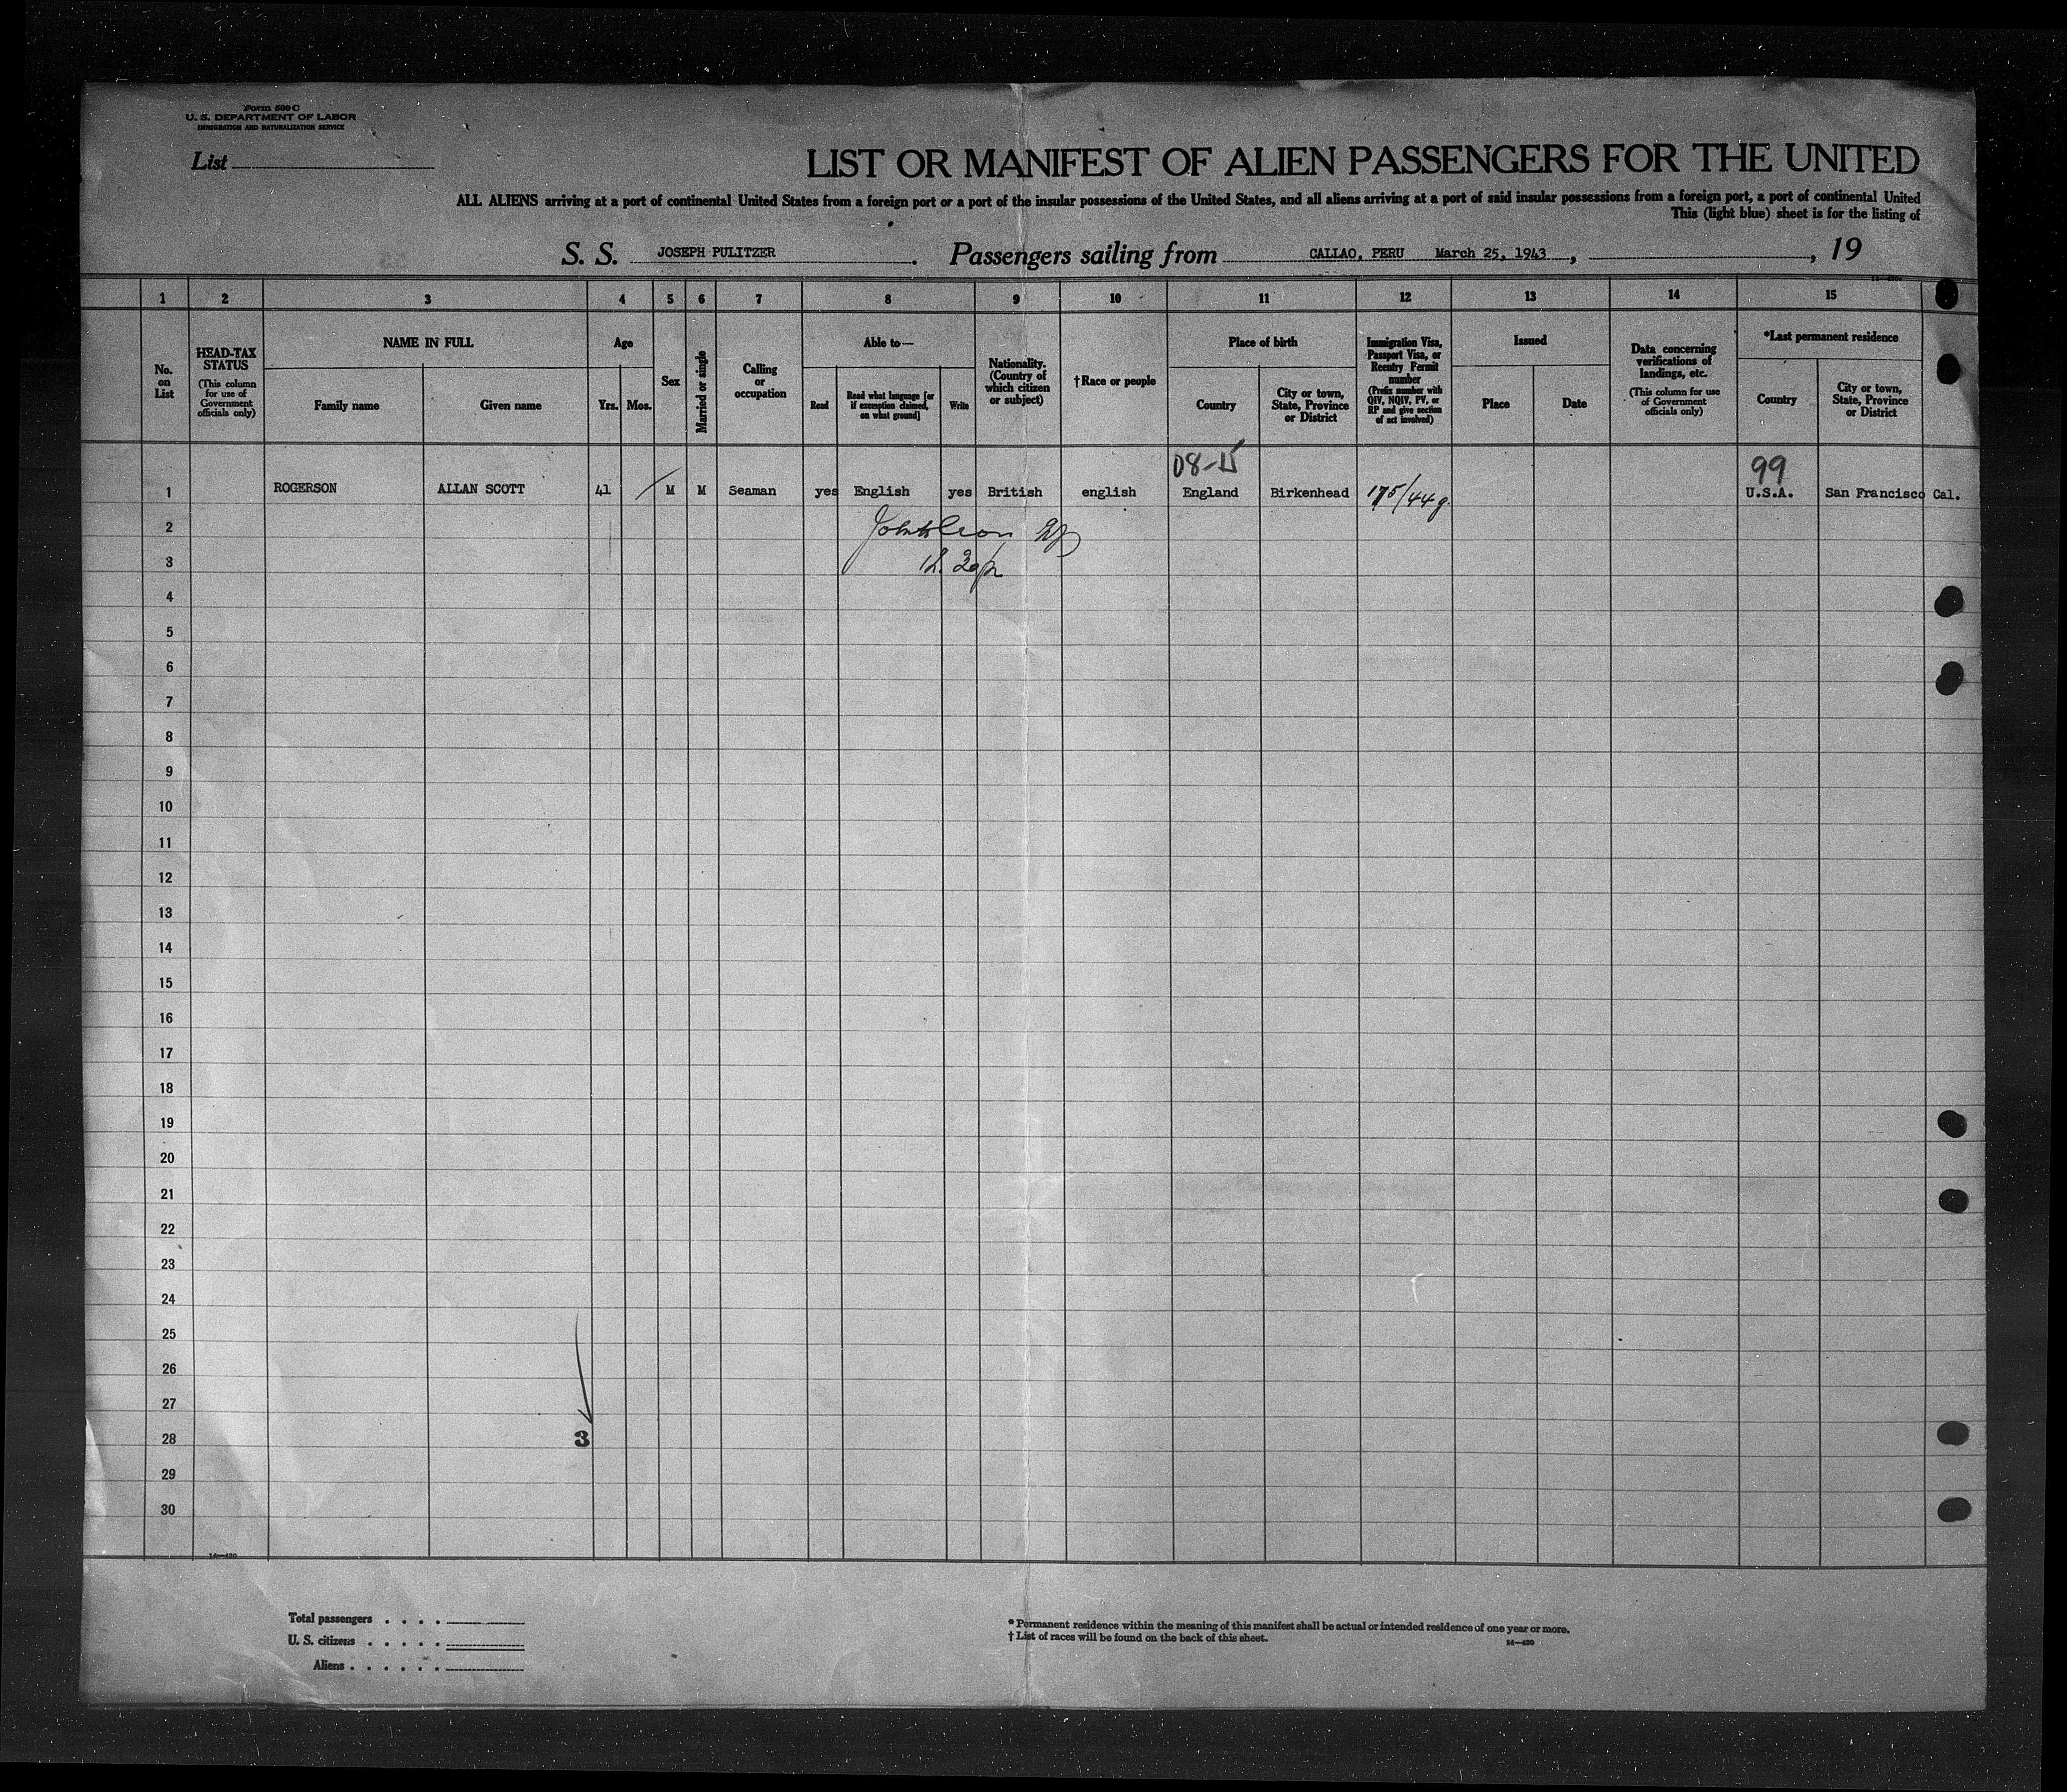 Form 500 C
U. S. DEPARTMENT OF LABOR
IMMIGRATION AND NATURALIZATION SERVICE
List
LIST OR MANIFEST OF ALIEN PASSENGERS FOR THE UNITED
ALL ALIENS arriving at a port of continental United States from a foreign port or a port of the insular possessions of the United States, and all aliens arriving at a port of said insular possessions from a foreign port, a port of continental United
This (light blue) sheet is for the listing of
S. S. JOSEPH PULITZER . Passengers sailing from CALLAO, PERU March 25, 1943 , , 19
1 2 3 4 5 6 7 8 9 10 11 12 13 14 15
No. on List
HEAD-TAX STATUS (This column for use of Government officials only)
NAME IN FULL
Family name
Given name
Age
Yrs.
Mos.
Sex
Married or single
Calling or occupation
Able to—
Read
Read what language [or if exemption claimed, on what ground]
Write
Nationality. (Country of which citizen or subject)
†Race or people
Place of birth
Country
City or town, State, Province or District
Immigration Visa, Passport Visa, or Reentry Permit number (Prefix number with QIV, NQIV, PV, or RP and give section of act involved)
Issued
Place
Date
Data concerning verifications of landings, etc. (This column for use of Government officials only)
*Last permanent residence
Country
City or town, State, Province or District
08-15
99
1 ROGERSON ALLAN SCOTT 41 M M Seaman yes English yes British english England Birkenhead 175/44 g. U.S.A. San Francisco Cal.
2
3
4
5
6
7
8
9
10
11
12
13
14
15
16
17
18
19
20
21
22
23
24
25
26
27
28 3
29
30
14—430
Total passengers . . . .
U. S. citizens . . . . .
Aliens . . . . . .
* Permanent residence within the meaning of this manifest shall be actual or intended residence of one year or more.
† List of races will be found on the back of this sheet.
14—430